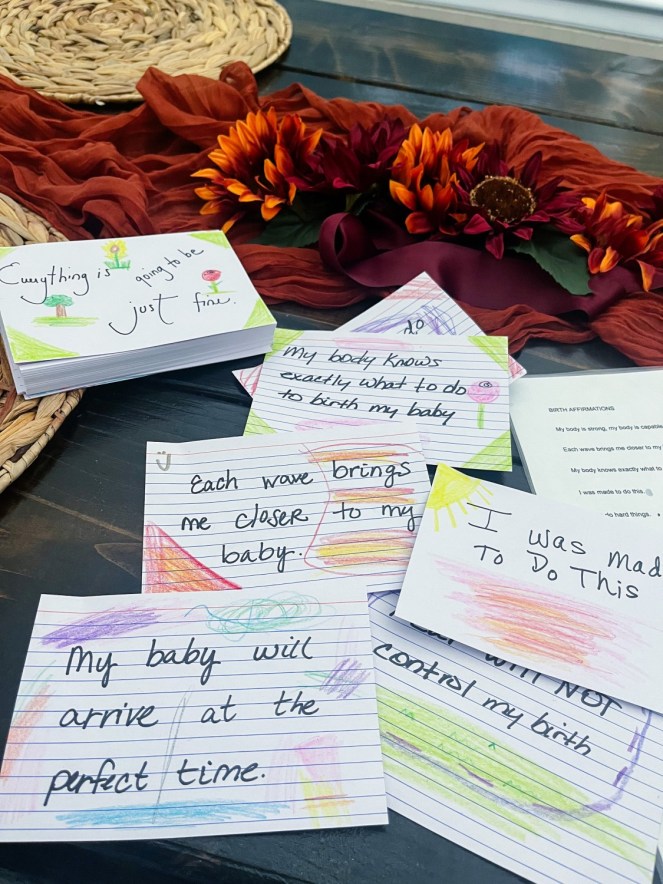 Everything is going to be
just fine.
do
My body knows
exactly what to do
to birth my baby
BIRTH AFFIRMATIONS
My body is strong, my body is capable
Each wave brings me closer to my
My body knows exactly what to
I was made to do this.
to hard things.
Each wave brings
me closer to my
baby.
I was Mad
To Do This
will NOT
control my birth
My baby will
arrive at the
perfect time.